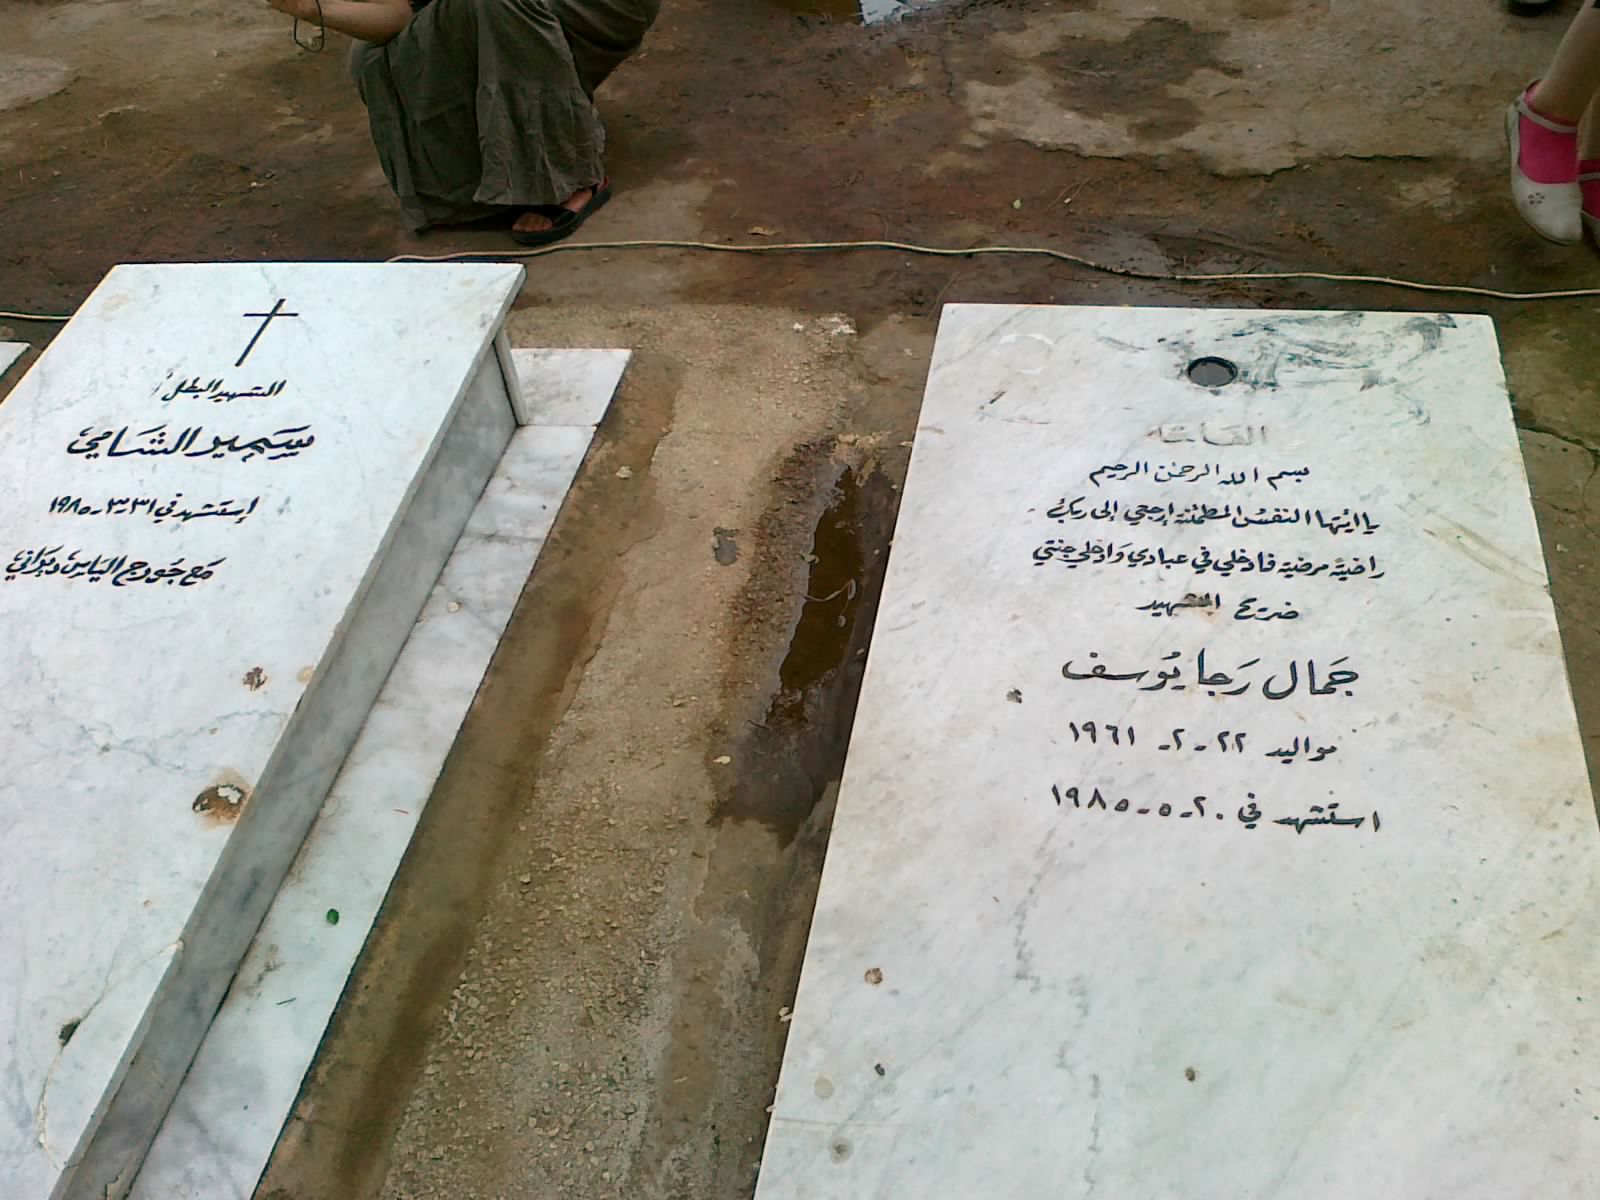 الشهيد البطل
سمير الشامي
إستشهد في ٣١-٣-١٩٨٥
مع جورجم الياس ديراني
الفاتحة
بسم الله الرحمن الرحيم
يا ايتها النفس المطمئنة إرجعي إلى ربك
راضية مرضية فادخلي في عبادي وادخلي جنتي
ضريح الشهيد
جمال رجا يوسف
مواليد ٢٢-٢-١٩٦١
استشهد في ٢٠-٥-١٩٨٥